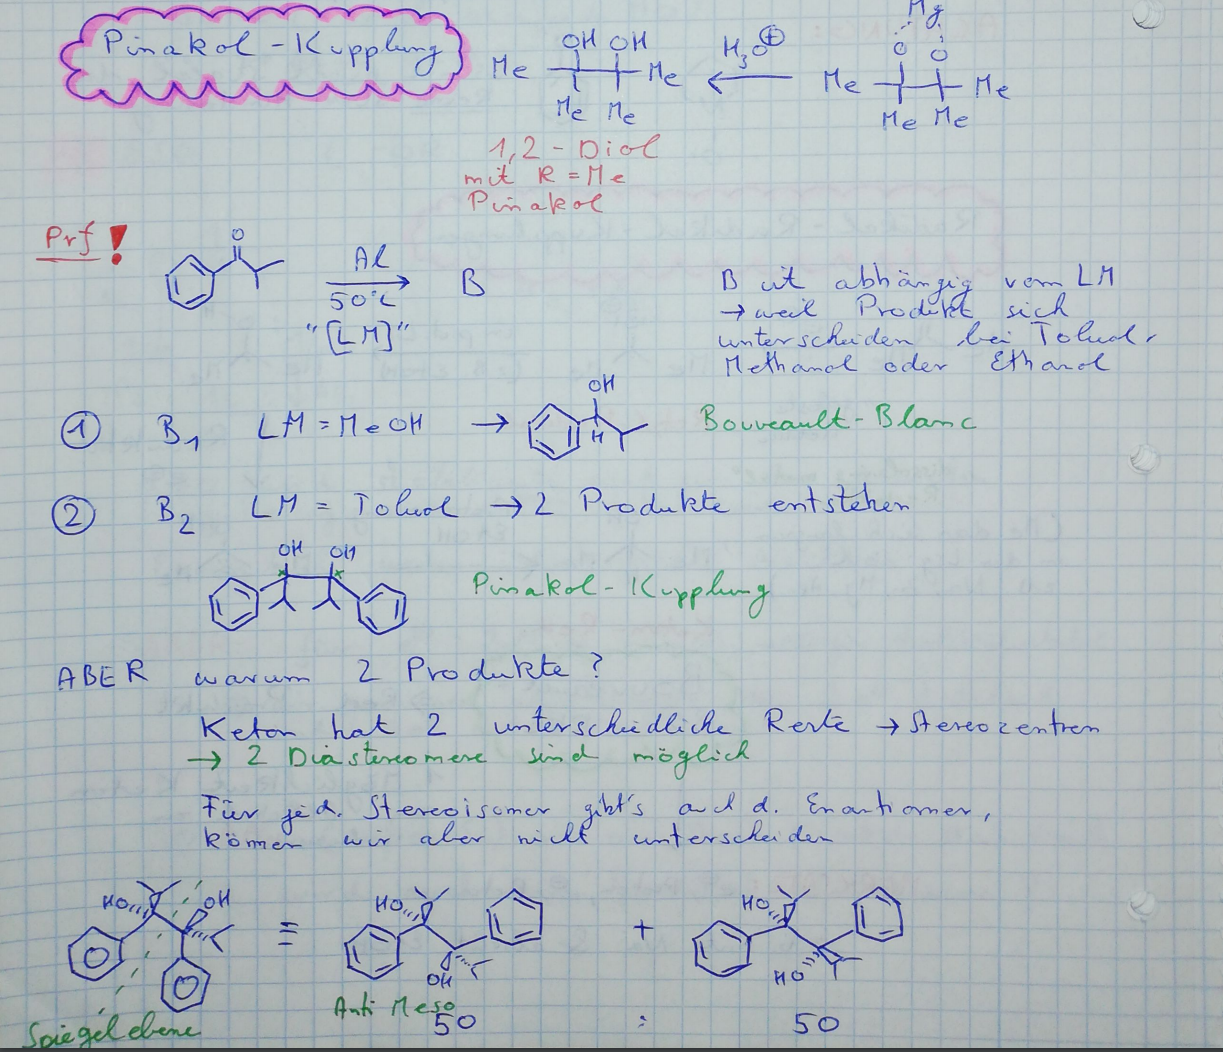 Pinakol-Kupplung
OH OH
H3O⊕
Mg
O O
Me Me
Me Me
Me Me
Me Me
1,2-Diol
mit R = Me
Pinakol
Prf!
O
Al
50°C
"[LM]"
B
B ist abhängig vom LM
→ weil Produkt sich
unterscheiden bei Toluol,
Methanol oder Ethanol
① B1 LM = MeOH →
OH
H
Bouveault-Blanc
② B2 LM = Toluol → 2 Produkte entstehen
OH OH
Pinakol-Kupplung
ABER warum 2 Produkte?
Keton hat 2 unterschiedliche Reste → Stereozentren
→ 2 Diastereomere sind möglich
Für jed. Stereoisomer gibt's auch d. Enantiomer,
können wir aber nicht unterscheiden
HO OH ≡ HO OH + HO HO
Spiegelebene
Anti Meso
50 : 50